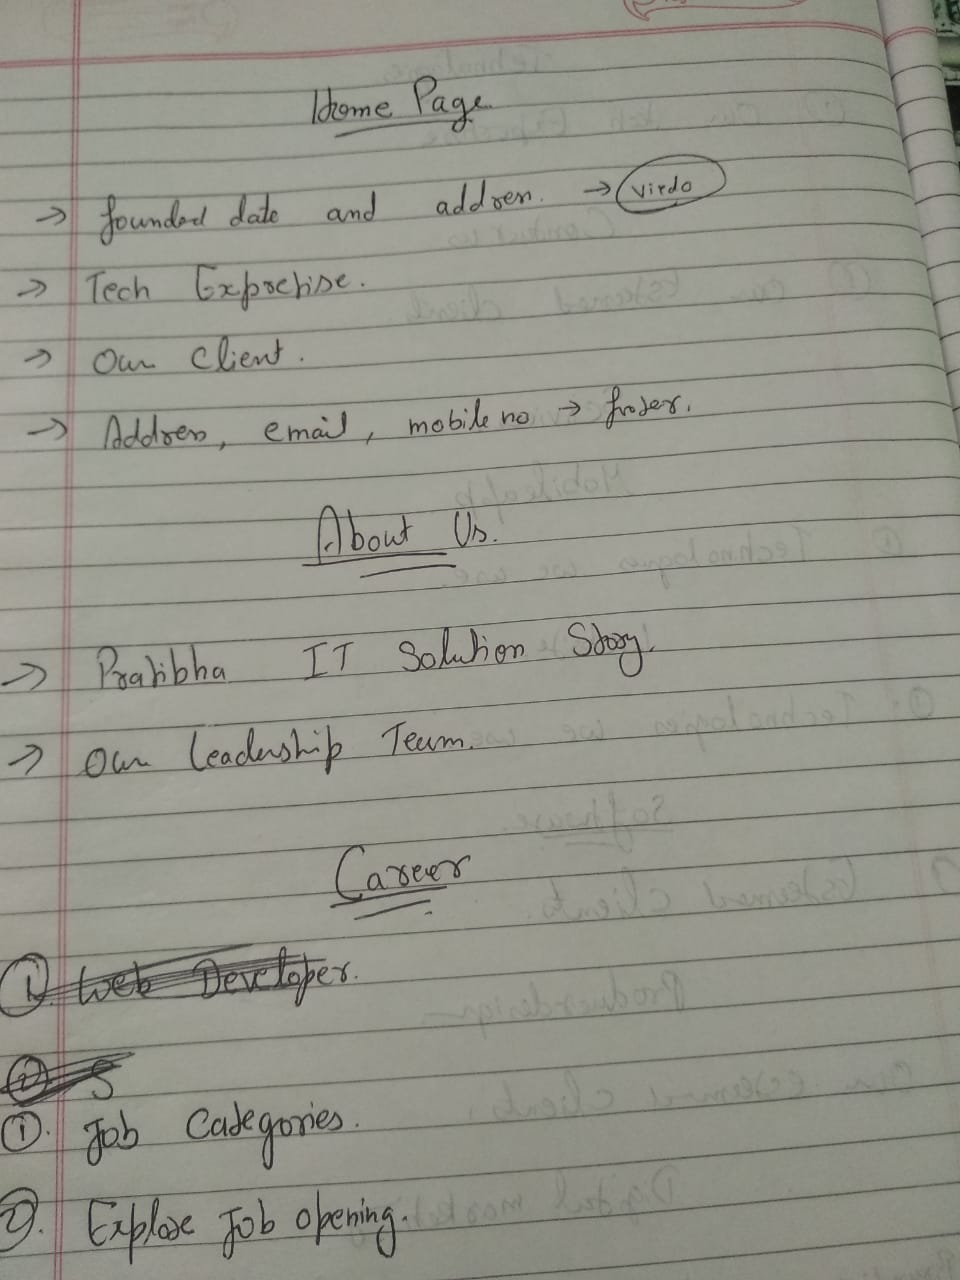 Home Page
→ founded date and address. → virdo
→ Tech Expretise.
→ Our Client.
→ Address, email, mobile no → footer.
About Us.
→ Pratibha IT Solution Story.
→ Our Leadership Team.
Career
①. Web Developer.
② S
①. Job Categories.
②. Explose Job opening.